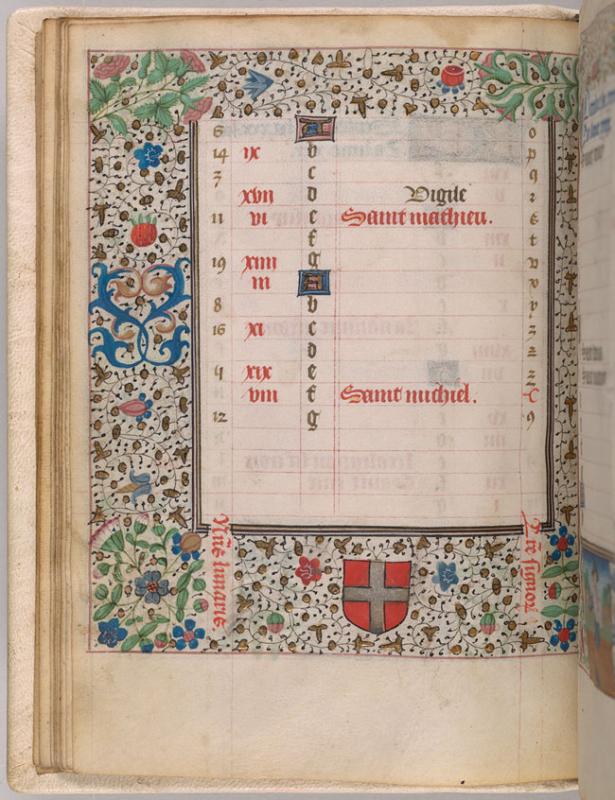 6 A o
14 ix b p
c q
xvii d Vigile
11 vi e Saint mathieu.
f t
19 xiiii g v
iii A
8 b
16 xi c z
d
4 xix e
viii f Saint michiel.
12 g 9
lunaris